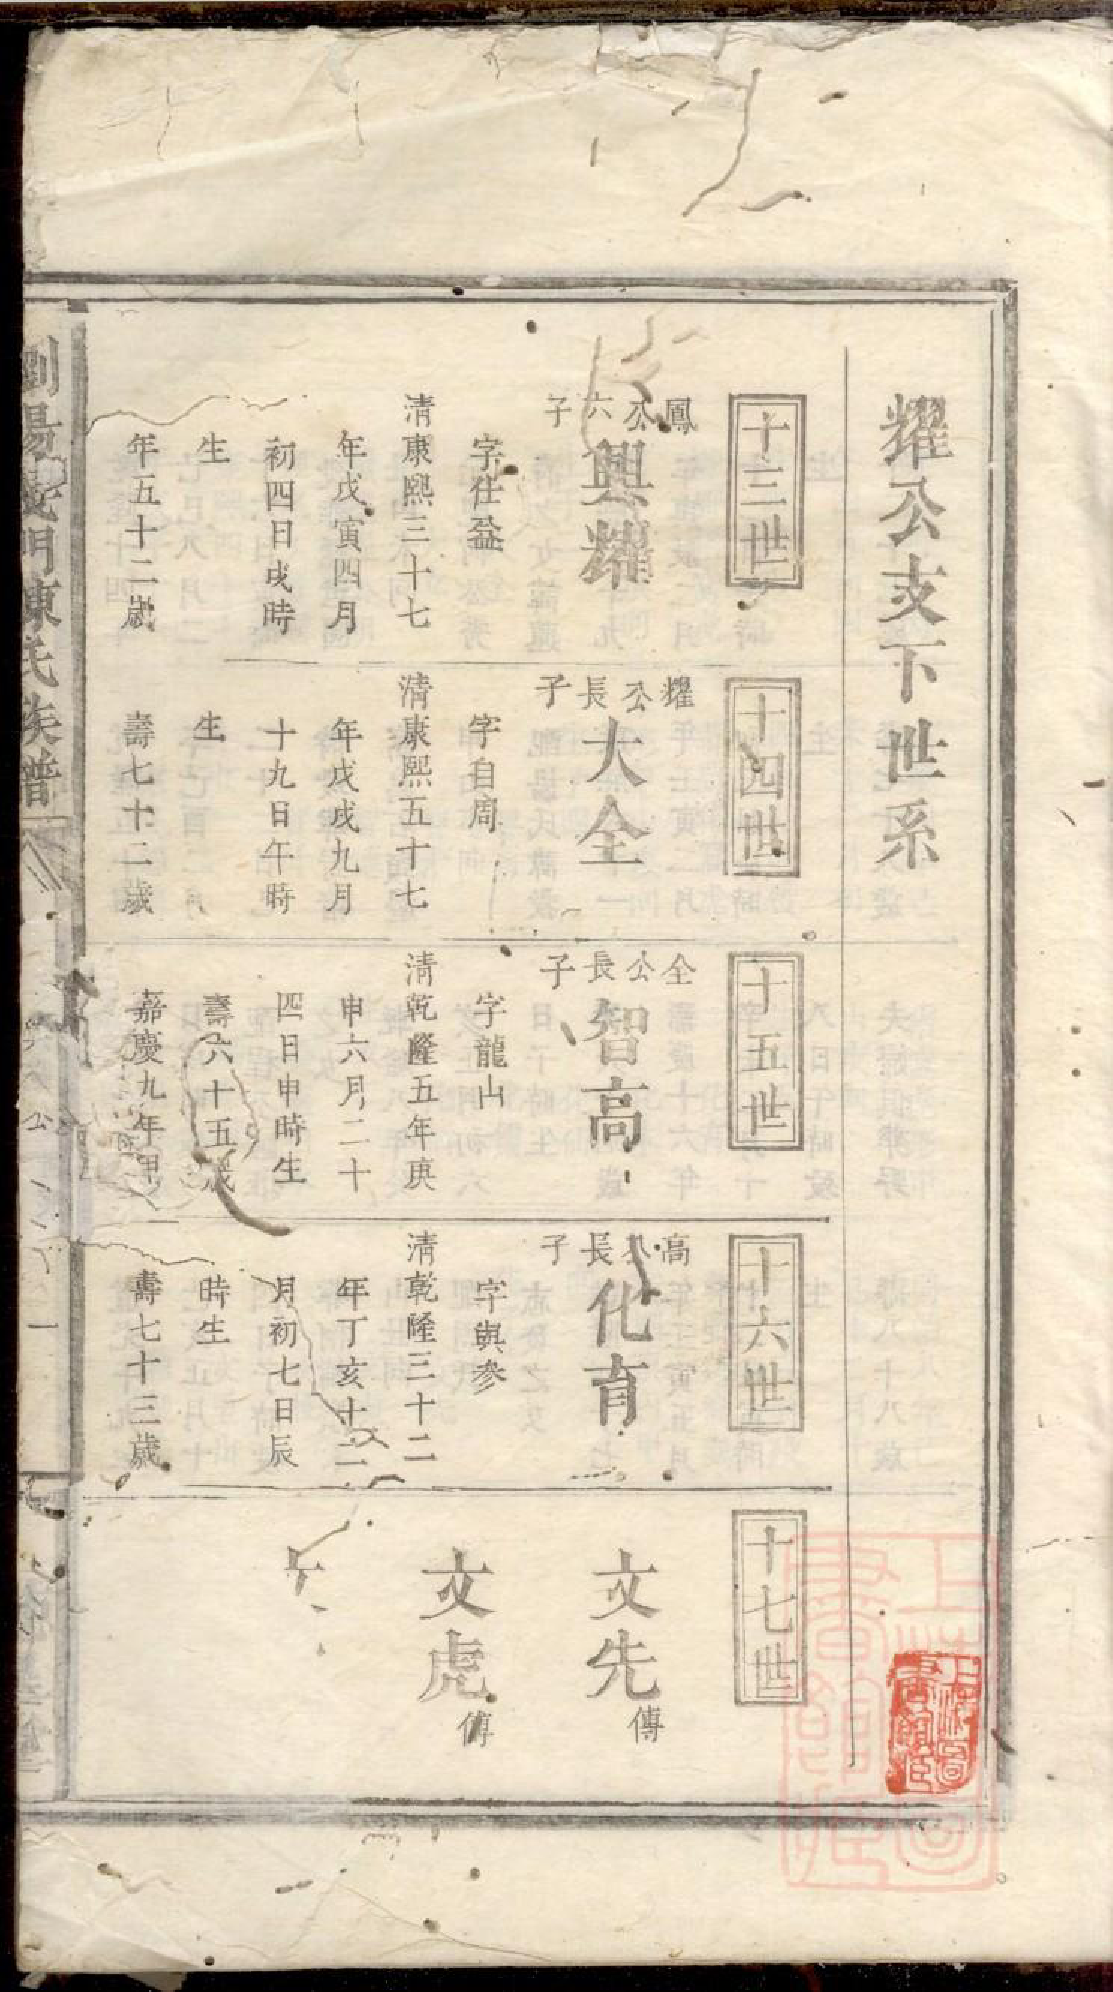 耀公支下世系
十三世
鳳公六子
興耀
字仕益
清康熙三十七
年戊寅四月
初四日戌時
生
年五十二歲
十四世
耀公長子
大全
字自周
清康熙五十七
年戊戌九月
十九日午時
生
壽七十二歲
十五世
全公長子
智高
字龍山
清乾隆五年庚
申六月二十
四日申時生
壽六十五歲
嘉慶九年甲
十六世
高公長子
化育
字與參
清乾隆三十二
年丁亥十二
月初七日辰
時生
壽七十三歲
十七世
文先
傳
文虎
傳
瀏陽義門陳氏族譜
上海圖書館藏